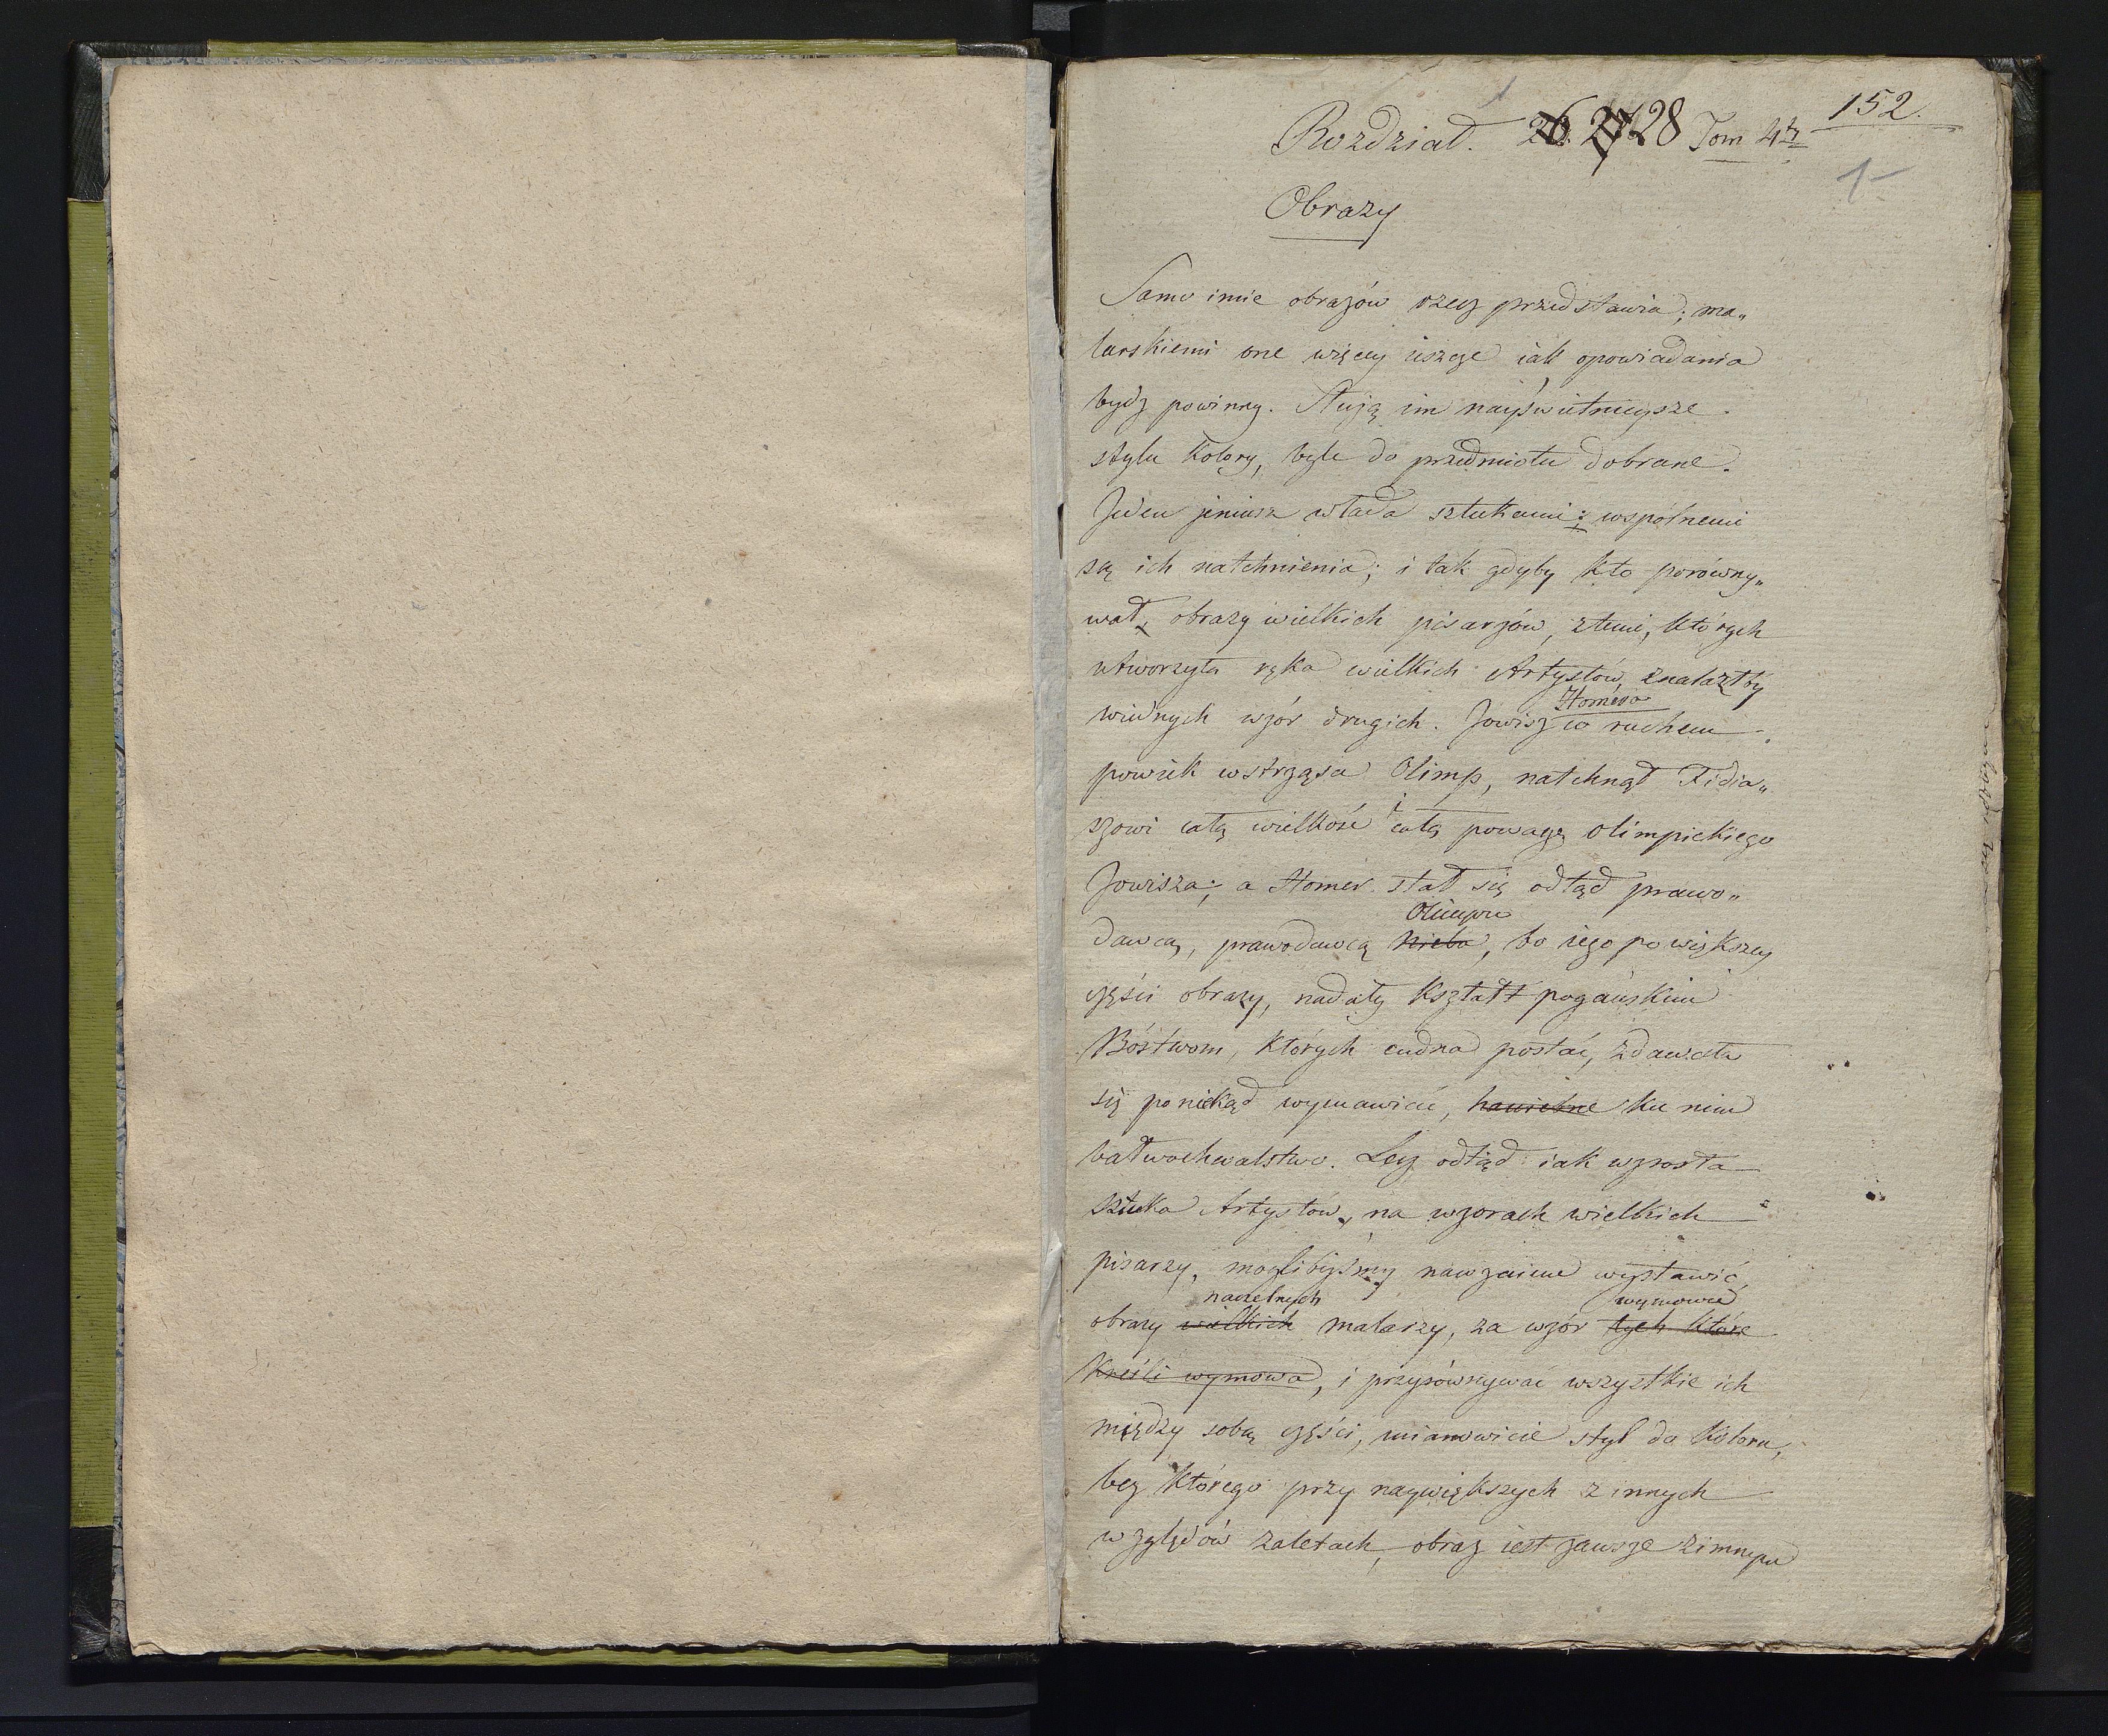 152.
Rozdział. 26. 27 28 Tom 4ty
1
Obrazy
Samo imie obrazów rzecz przedstawia; ma„
larskiemi one więcey ieszcze iak opowiadania
bydź powinny. Służą im nayświetnieysze
stylu kolory, byle do przedmiotu dobrane.
Jeden jeniusz włada sztukami; wspólnemi
są ich natchnienia; i tak gdyby kto porówny„
wał, obrazy wielkich pisarzów, z temi, których
utworzyła ręka wielkich Artystów, znalazłby
Homera
w iednych wzór drugich. Jowisz co ruchem
powiek wstrząsa Olimp, natchnął Fidia„
szowi całą wielkość i całą powagę olimpickiego
Jowisza; a Homer stał się odtąd prawo„
Olimpu
dawcą, prawodawcą nieba, bo iego po większey
części obrazy, nadały kształt pogańskim
Bóstwom, których cudna postać, zdawała
się poniekąd wymawiać, haniebne ku nim
bałwochwalstwo. Lecz odtąd iak wzrosła
sztuka Artystów, na wzorach wielkich
pisarzy, moglibyśmy nawzaiem wystawić,
naczelnych wymowie
obrazy wielkich malarzy, za wzór tych które
kreśli wymowa, i przyrównywać wszystkie ich
między sobą części, mianowicie styl do koloru,
bez którego przy naywiększych z innych
względów zaletach, obraz iest zawsze zimnym